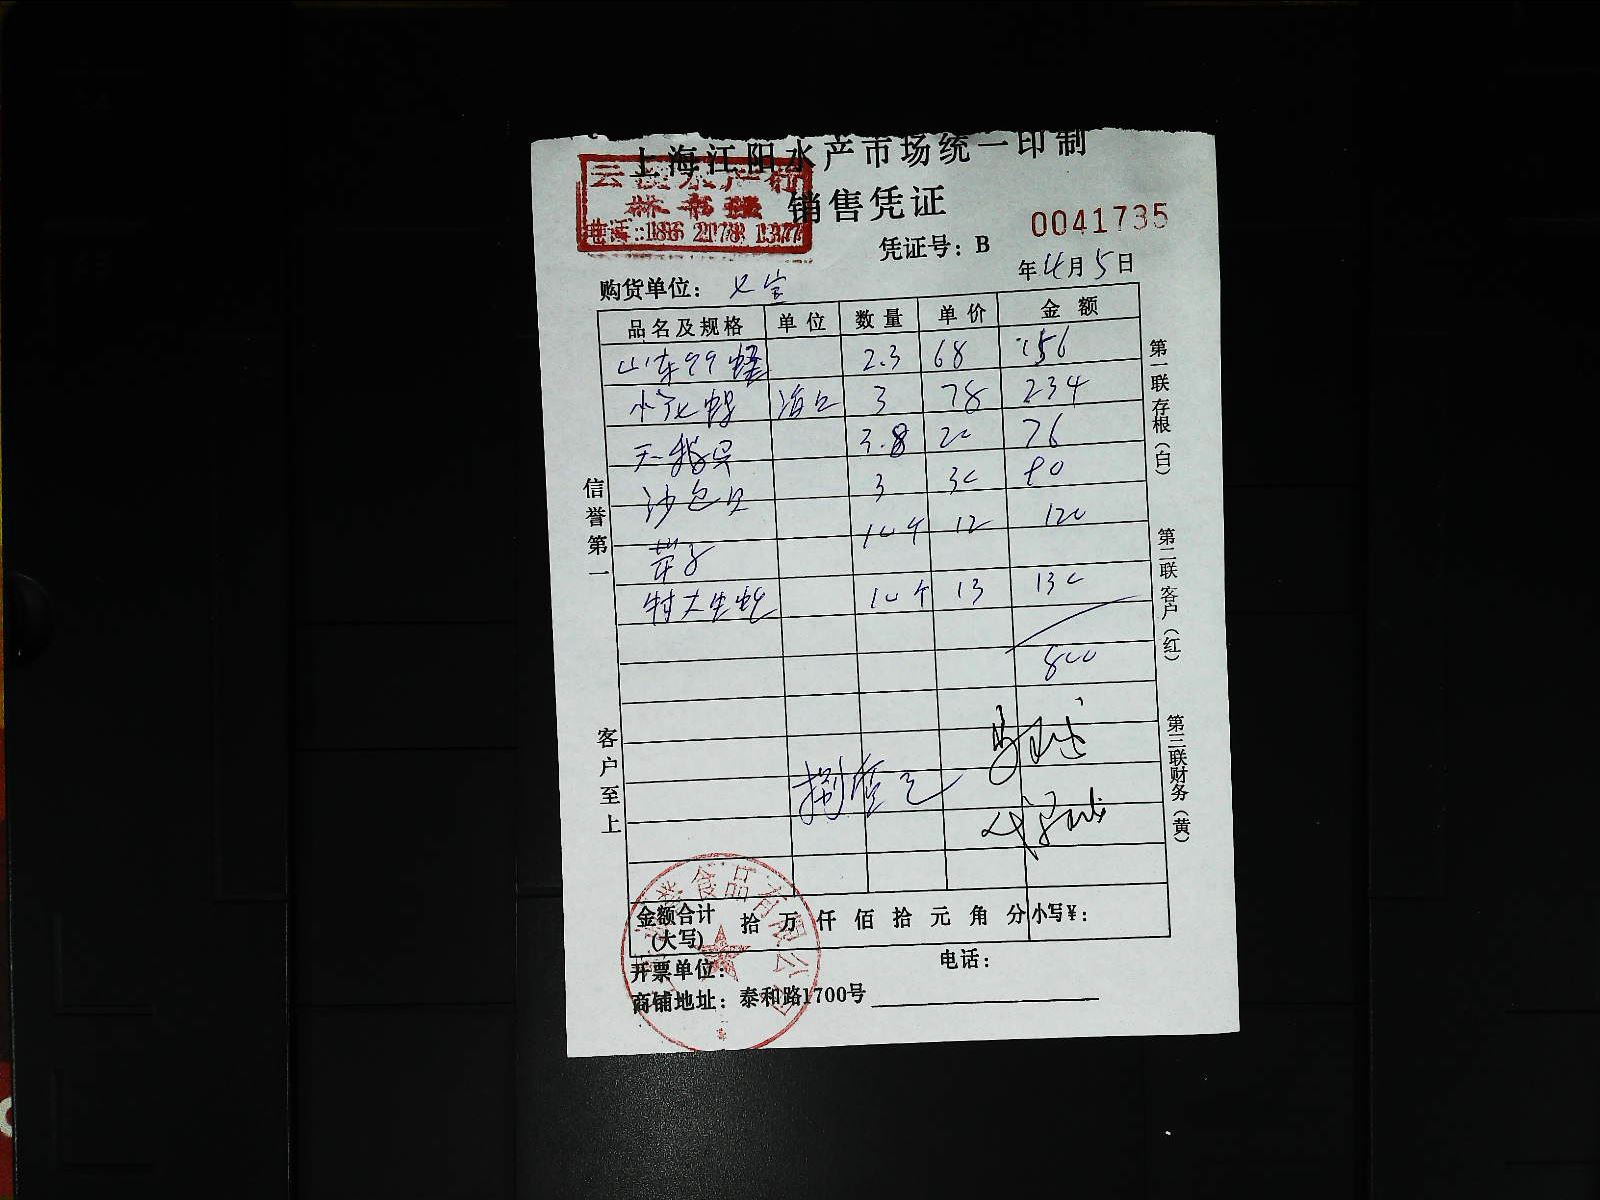 上海江阳水产市场统一印制
水产行
销售凭证
电话:186 2178 1377
0041735
凭证号：B
年4月5日
购货单位：七宝
品名及规格 单位 数量 单价 金额
山东99蛏 2.3 68 156
小花螺 3 78 234
天鹅贝 3.8 20 76
沙包贝 3 30 90
芽子 10个 12 120
特大生蚝 10个 13 130
800
捌佰元
信誉第一
客户至上
第一联存根（白）
第二联客户（红）
第三联财务（黄）
金额合计(大写) 拾 万 仟 佰 拾 元 角 分 小写￥：
食品有限公司
开票单位： 电话：
商铺地址：泰和路1700号